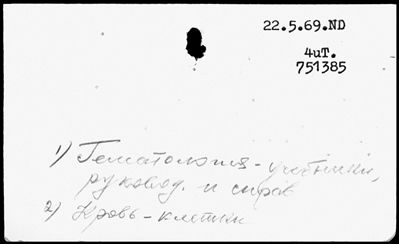 22.5.69.ND
4uT.
751385
1) Гематология - учебники,
руковод. и справ
2) Кровь - клетки